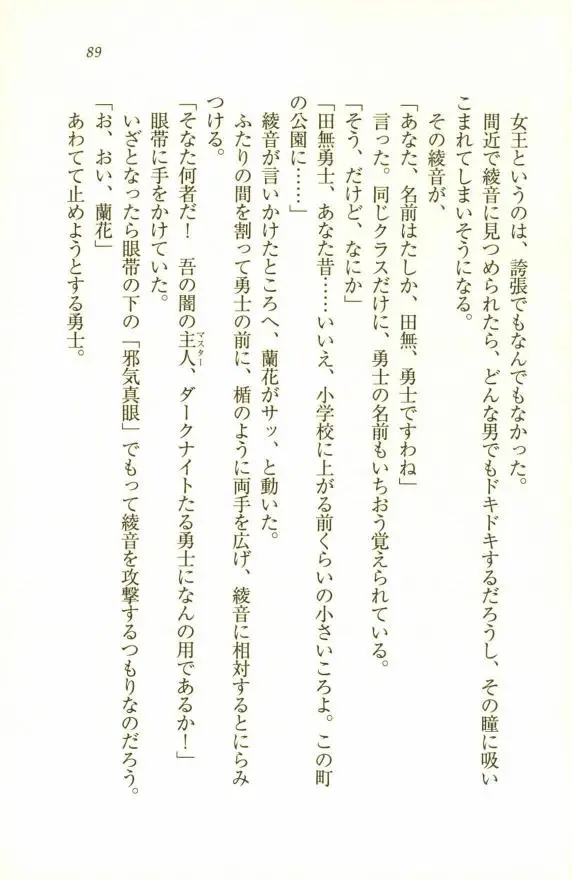 89
女王というのは、誇張でもなんでもなかった。
間近で綾音に見つめられたら、どんな男でもドキドキするだろうし、その瞳に吸い
こまれてしまいそうになる。
その綾音が、
「あなた、名前はたしか、田無、勇士ですわね」
言った。同じクラスだけに、勇士の名前もいちおう覚えられている。
「そう、だけど、なにか」
「田無勇士、あなた昔……いいえ、小学校に上がる前くらいの小さいころよ。この町
の公園に……」
綾音が言いかけたところへ、蘭花がサッ、と動いた。
ふたりの間を割って勇士の前に、楯のように両手を広げ、綾音に相対するとにらみ
つける。
「そなた何者だ！　吾の闇の主人、ダークナイトたる勇士になんの用であるか！」
マスター
眼帯に手をかけていた。
いざとなったら眼帯の下の「邪気真眼」でもって綾音を攻撃するつもりなのだろう。
「お、おい、蘭花」
あわてて止めようとする勇士。